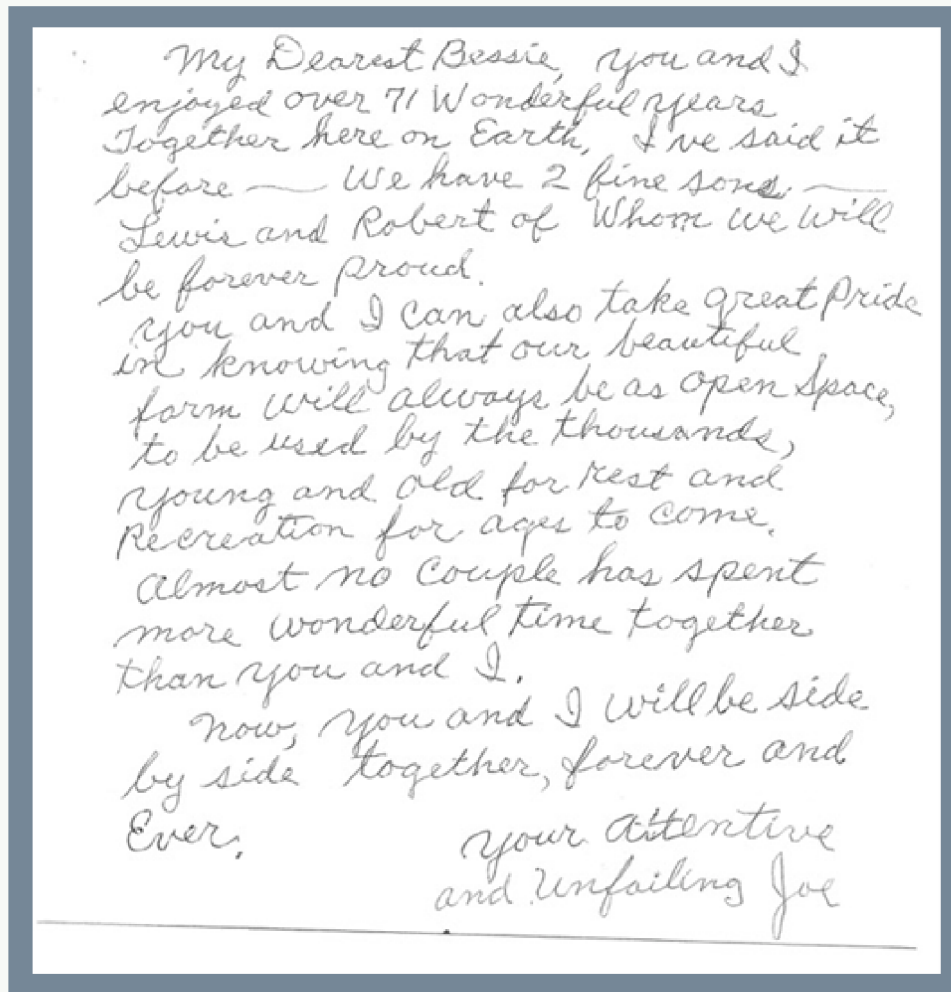 My Dearest Bessie, you and I
enjoyed over 71 Wonderful years
Together here on Earth, I've said it
before — We have 2 fine sons —
Lewis and Robert of Whom we will
be forever proud.
you and I can also take great Pride
in knowing that our beautiful
farm will always be as open Space,
to be used by the thousands,
young and old for rest and
Recreation for ages to come.
Almost no couple has spent
more wonderful time together
than you and I.
Now, you and I will be side
by side together, forever and
Ever.
your attentive
and Unfailing Joe